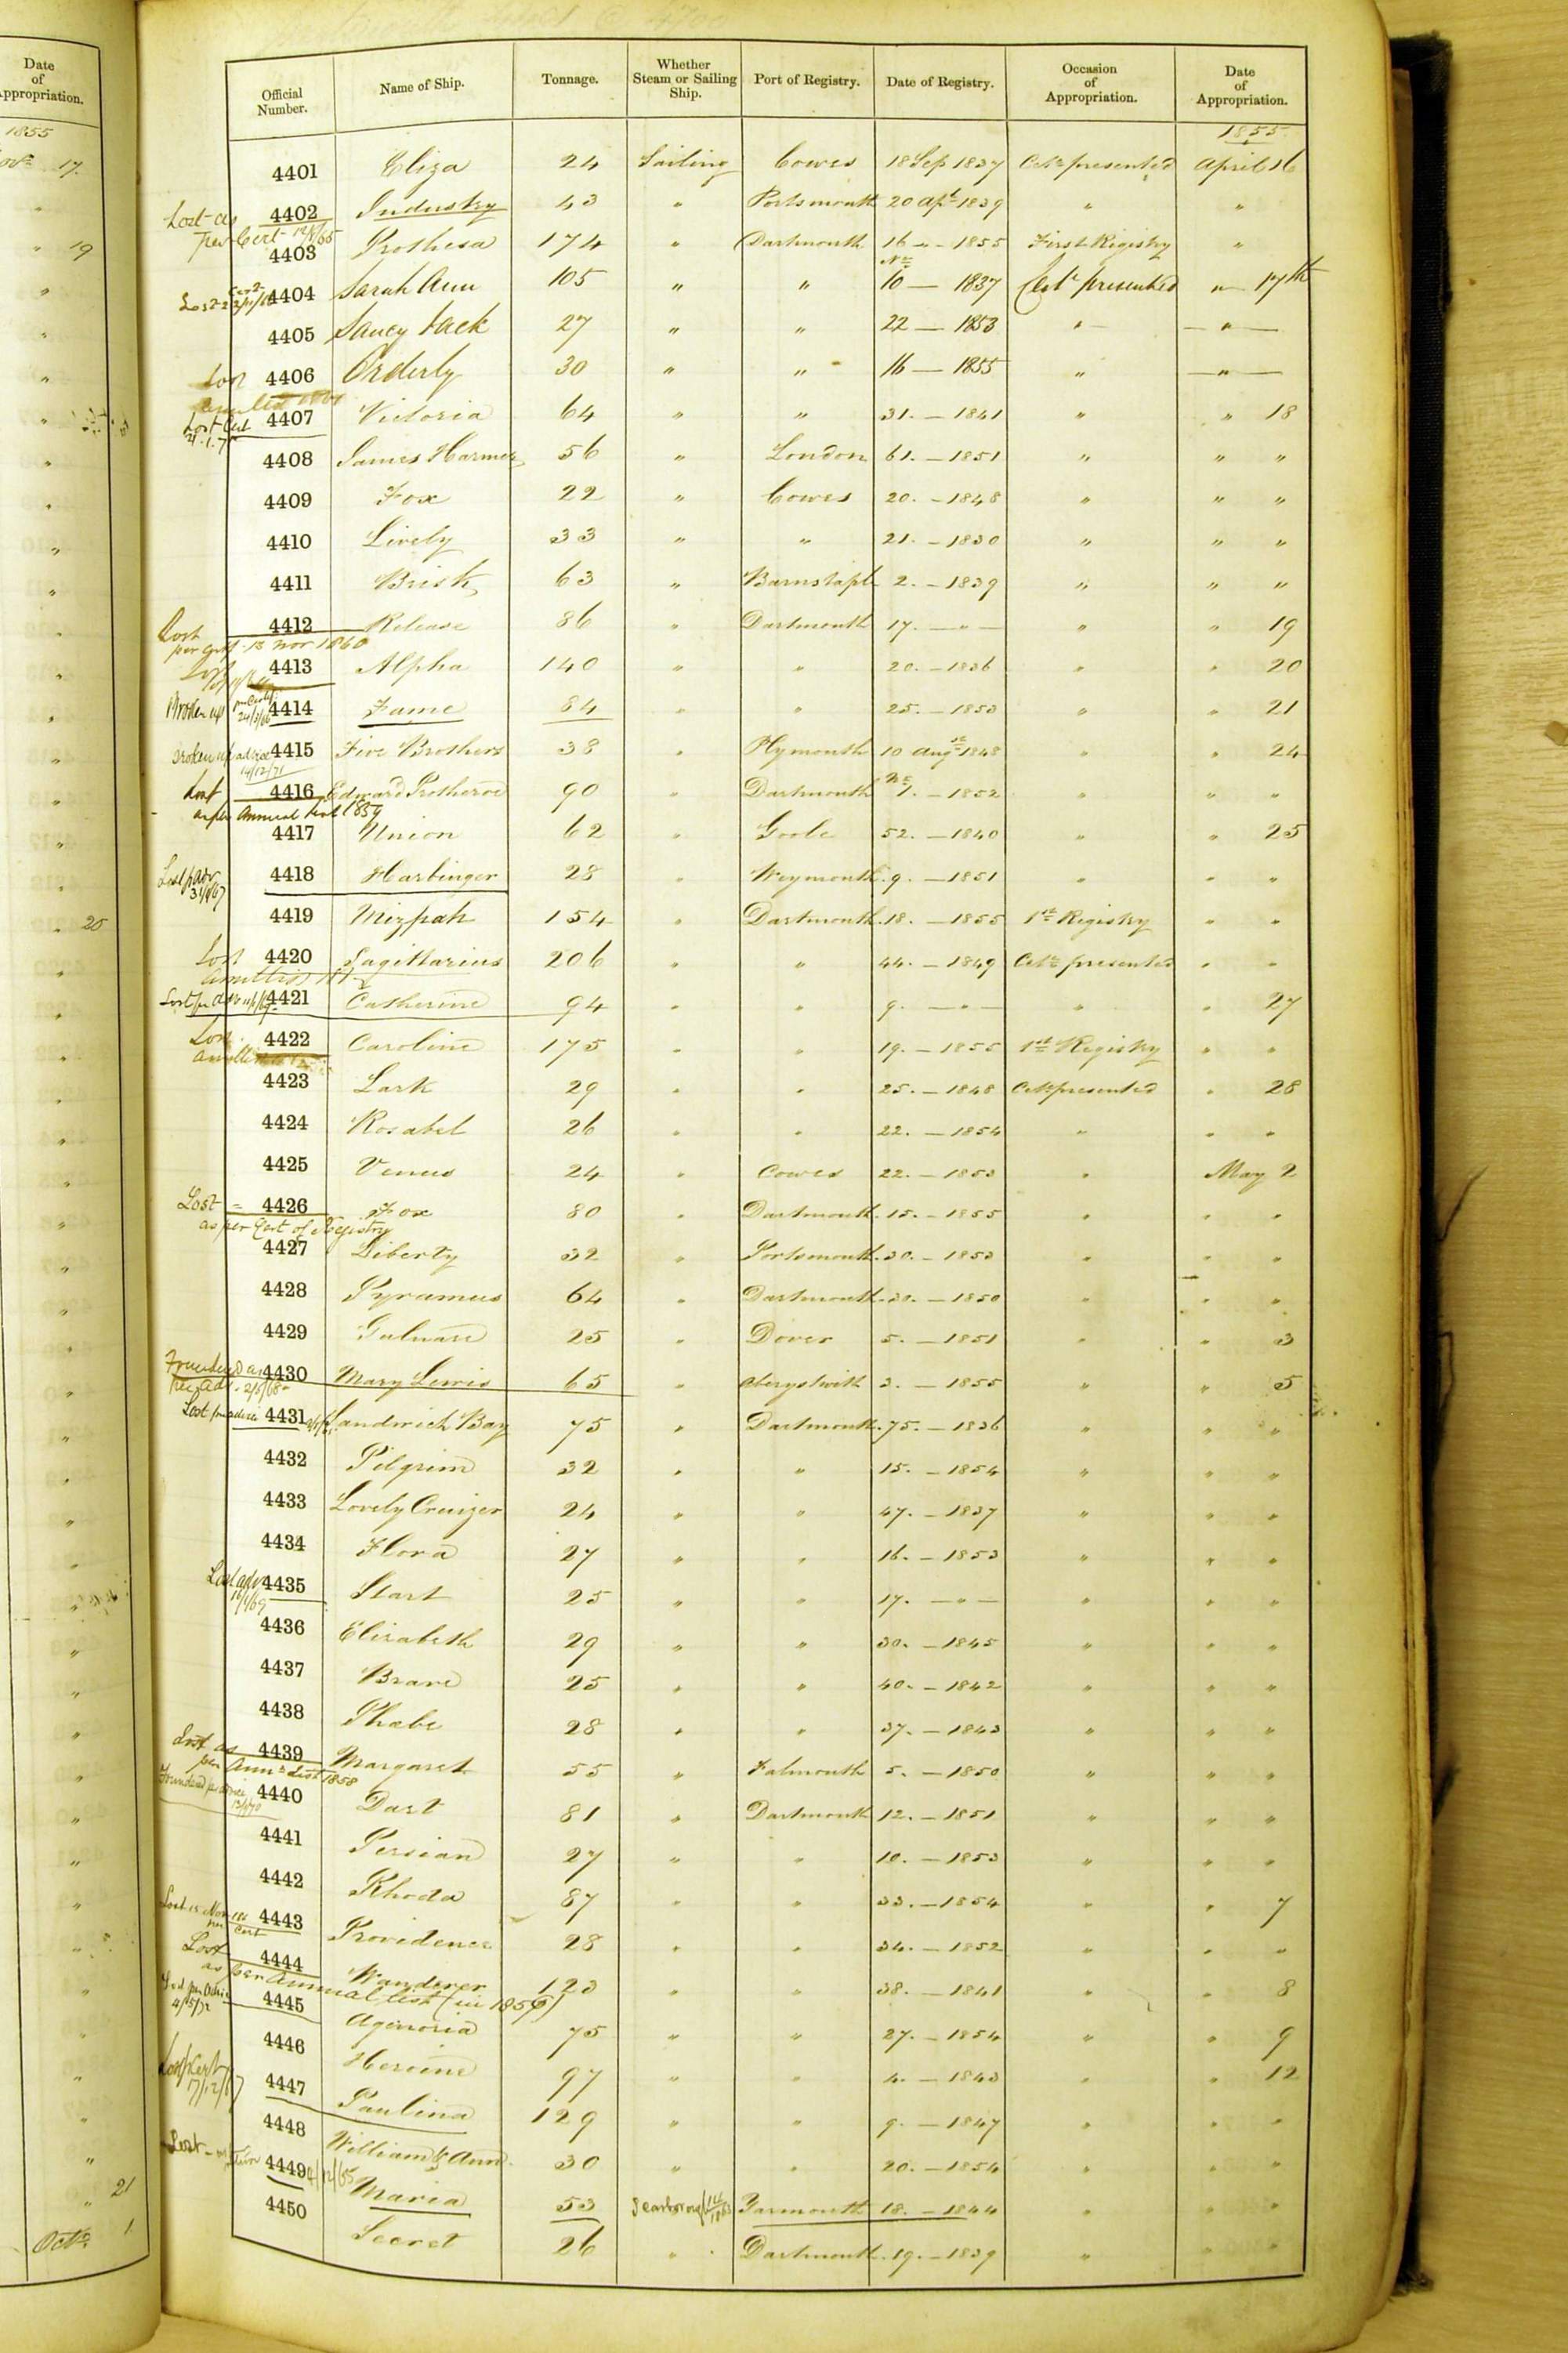 Date of Appropriation.
1855
17.
" 19
" 25
" 21
Octr. 1
Official Number. Name of Ship. Tonnage. Whether Steam or Sailing Ship. Port of Registry. Date of Registry. Occasion of Appropriation. Date of Appropriation.
1855
4401 Eliza 24 Sailing Cowes 18 Sep 1837 Certe presented April 16
Lost as per Cert 4402 Industry 43 " Portsmouth 20 Apl 1839 " "
4403 Prothesa 174 " Dartmouth 16 " - 1855 First Registry "
No
Lost 4404 Sarah Ann 105 " " 10 — 1837 Cert presented " 17th
4405 Saucy Jack 27 " " 22 — 1853 " — " —
Lost 4406 Orderly 30 " " 16 — 1855 " — " —
Lost Cert 4407 Victoria 64 " " 31. — 1841 " " 18
4408 James Harmer 56 " London 61. — 1851 " " "
4409 Fox 22 " Cowes 20. — 1848 " " "
4410 Lively 33 " " 21. — 1830 " " "
4411 Brisk 63 " Barnstaple 2. — 1839 " " "
Lost 4412 Release 86 " Dartmouth 17. — " — " " 19
per Certf. 13 Nov 1860
Lost 4413 Alpha 140 " " 20. — 1836 " " 20
Broken up per Certf. 4414 Fame 84 " " 25. — 1853 " " 21
Broken up advice 14/12/71 4415 Five Brothers 38 " Plymouth 10 Augt 1848 " " 24
Lost 4416 Edward Protheroe 90 " Dartmouth No 7. — 1852 " " "
as per Annual List 1859
4417 Union 62 " Goole 52. — 1840 " " 25
4418 Harbinger 28 " Weymouth 9. — 1851 " " "
4419 Mizpah 154 " Dartmouth 18. — 1855 1st Registry " "
Lost 4420 Sagittarius 206 " " 44. — 1849 Certe presented " "
4421 Catherine 94 " " 9. — " — " " 27
Lost 4422 Caroline 175 " " 19. — 1855 1st Registry " "
4423 Lark 29 " " 25. — 1848 Certe presented " 28
4424 Rosabel 26 " " 22. — 1854 " " "
4425 Venus 24 " Cowes 22. — 1853 " May 2
Lost = 4426 Fox 80 " Dartmouth 15. — 1855 " " "
as per Cert of Registry
4427 Liberty 32 " Portsmouth 30. — 1853 " " "
4428 Pyramus 64 " Dartmouth 30. — 1850 " " "
4429 Gulnare 25 " Dover 5. — 1851 " " 3
Foundered as per adv. 4430 Mary Lewis 65 " Aberystwith 3. — 1855 " " 5
Lost per advice 4431 Sandwich Bay 75 " Dartmouth 75. — 1836 " " "
4432 Pilgrim 32 " " 15. — 1854 " " "
4433 Lovely Cruizer 24 " " 47. — 1837 " " "
4434 Flora 27 " " 16. — 1853 " " "
Lost adv 4435 Start 25 " " 17. — " — " " "
4436 Elizabeth 29 " " 30. — 1845 " " "
4437 Brave 25 " " 40. — 1842 " " "
4438 Phœbe 28 " " 37. — 1843 " " "
Lost as 4439 Margaret 55 " Falmouth 5. — 1850 " " "
per Annl List 1858
Foundered per advice 4440 Dart 81 " Dartmouth 12. — 1851 " " "
4441 Persian 27 " " 10. — 1853 " " "
4442 Rhoda 87 " " 33. — 1854 " " 7
per Cert 4443 Providence 28 " " 34. — 1852 " " "
Lost 4444 Wanderer 123 " " 38. — 1841 " " 8
as per Annual List (in 1856)
4445 Agenoria 75 " " 27. — 1854 " " 9
4446 Heroine 97 " " 4. — 1843 " " 12
Lost Cert 17/12/67 4447 Paulina 129 " " 9. — 1847 " " "
4448 William & Ann 30 " " 20. — 1854 " " "
Lost 4449 Maria 53 Scarborough Yarmouth 18. — 1844 " " "
4450 Secret 26 " Dartmouth 19. — 1839 " " "